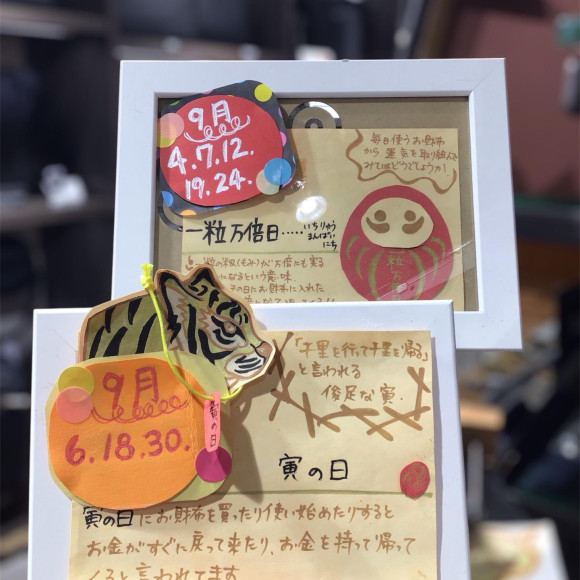 9月
4.7.12.
19.24.
毎日使うお財布
から 運気を取り組んで
みてはどうでしょうか!
一粒万倍日.....いちりゅう
まんばい
にち
一粒の籾(もみ)が万倍にも実る
になるという意味。
の日にお財布に入れた
一粒万
9月
6.18.30.
寅の日
「千里を行って千里を帰る」
と言われる
俊足な寅.
寅の日
寅の日にお財布を買ったり使い始めたりすると
お金がすぐに戻って来たり、お金を持って帰って
くると言われてます